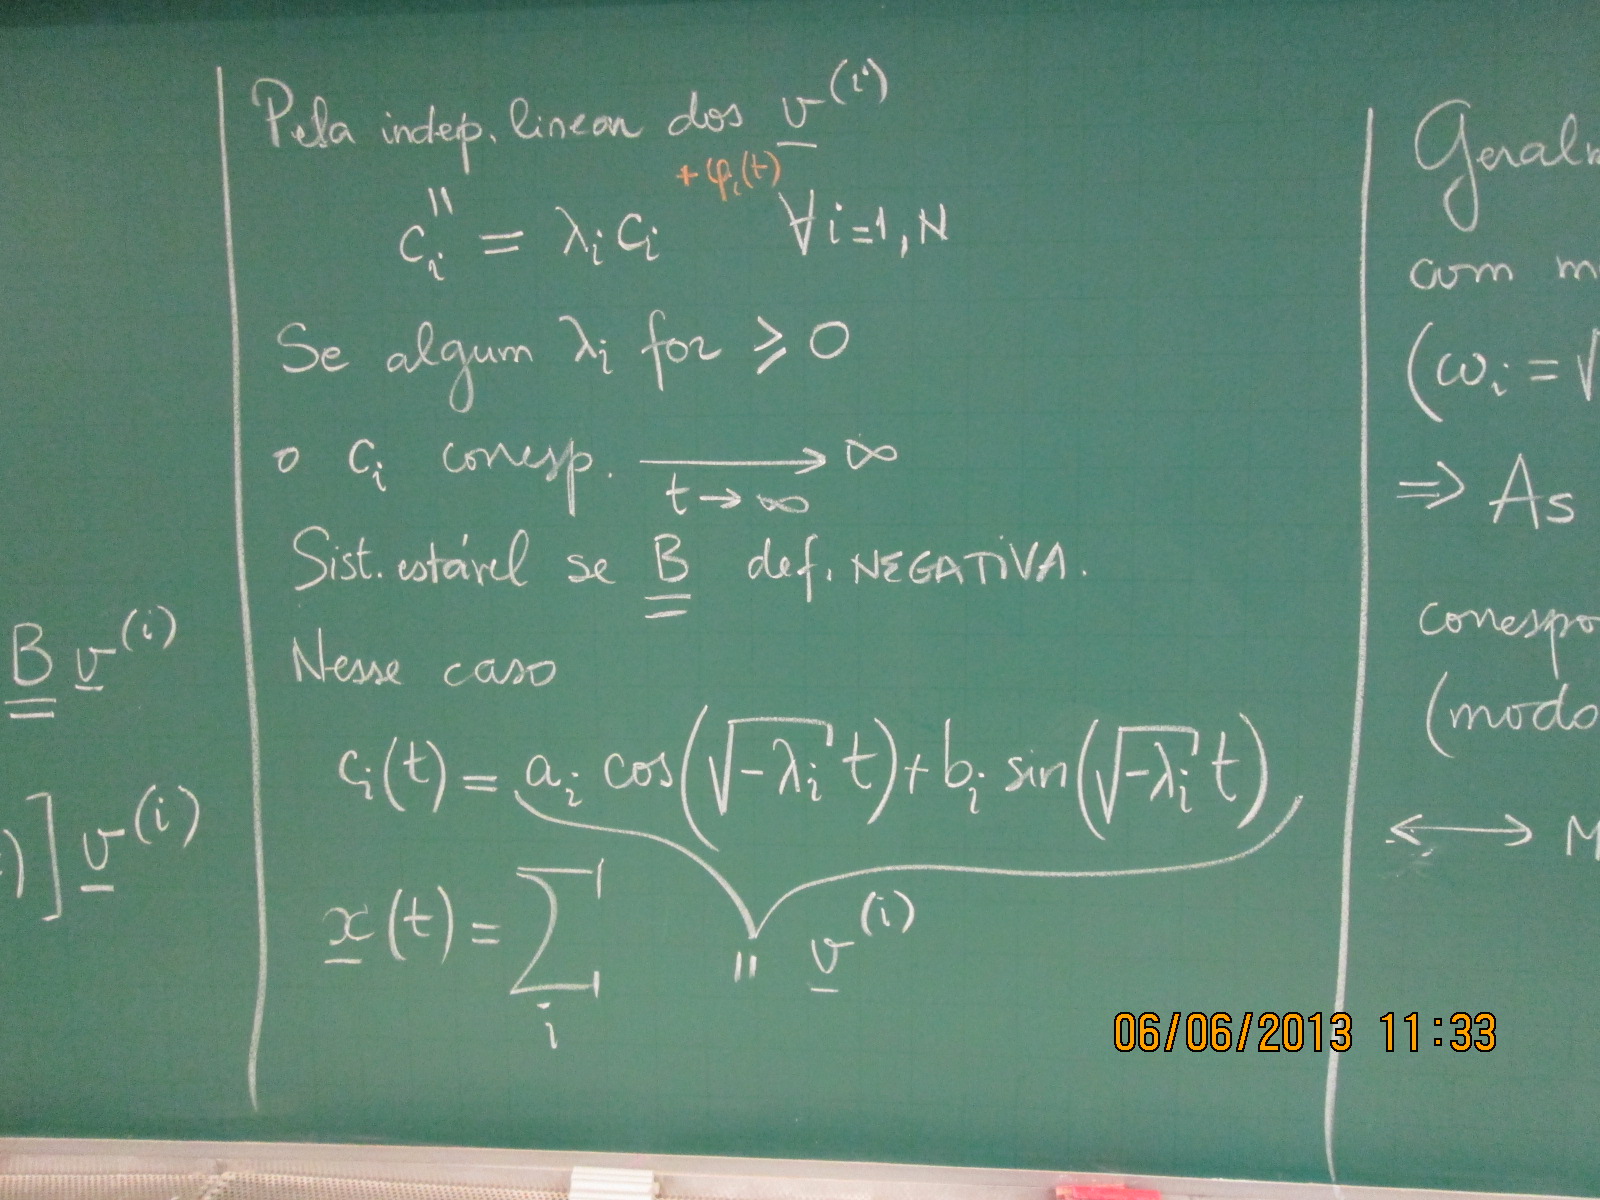 B v^(i)
)] v^(i)
Pela indep. linear dos v^(i)
+ φ_i(t)
c_i'' = λ_i c_i ∀ i=1, N
Se algum λ_i for ⩾ 0
o c_i corresp. → ∞
t → ∞
Sist. estável se B def. NEGATIVA.
Nesse caso
c_i(t) = a_i cos(√-λ_i t) + b_i sin(√-λ_i t)
x(t) = Σ_i " v^(i)
com m
(ω_i = √
⇒ As
(modo
⟷ M
06/06/2013 11:33